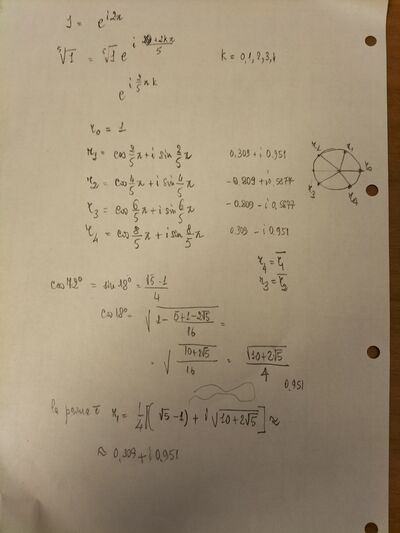 1 = e^{i2π}
⁵√1 = ⁵√1 e^{i (0+2kπ)/5} k = 0,1,2,3,4
e^{i 2/5 π k}
r₀ = 1
r₁ = cos 2/5 π + i sin 2/5 π 0,309 + i 0.951
r₂ = cos 4/5 π + i sin 4/5 π -0.809 + i 0,5877
r₃ = cos 6/5 π + i sin 6/5 π -0.809 - i 0,5877
r₄ = cos 8/5 π + i sin 8/5 π 0.309 - i 0.951
r₂ r₁ r₀ r₃ r₄
r₄ = r̄₁
r₃ = r̄₂
cos 72° = sin 18° = (√5 - 1)/4
cos 18° = √(1 - (5+1-2√5)/16) =
= √((10+2√5)/16) = √(10+2√5)/4
0,951
la prima è r₁ = 1/4 [(√5-1) + i √(10+2√5)] ≈
≈ 0,309 + i 0,951